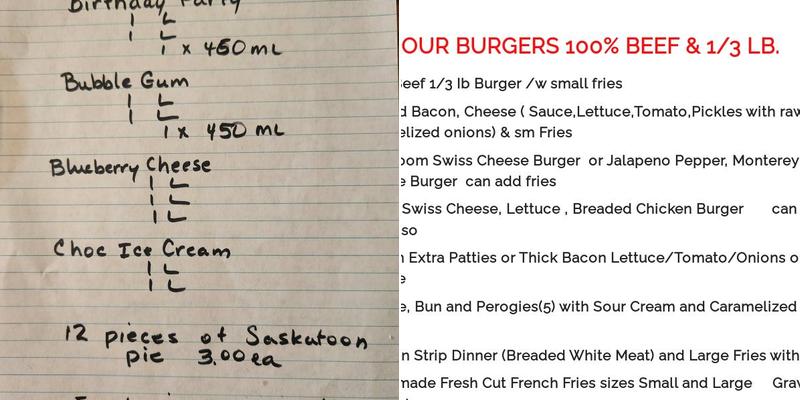 Birthday Party
1 L
1 L
1 x 450 mL
Bubble Gum
1 L
1 L
1 x 450 mL
Blueberry Cheese
1 L
1 L
1 L
Choc Ice Cream
1 L
1 L
12 pieces of Saskatoon
pie 3.00 ea
OUR BURGERS 100% BEEF & 1/3 LB.
Beef 1/3 lb Burger /w small fries
Bacon, Cheese ( Sauce,Lettuce,Tomato,Pickles with raw
onions) & sm Fries
Swiss Cheese Burger or Jalapeno Pepper, Monterey
Burger can add fries
Swiss Cheese, Lettuce , Breaded Chicken Burger can
Extra Patties or Thick Bacon Lettuce/Tomato/Onions
Bun and Perogies(5) with Sour Cream and Caramelized
Strip Dinner (Breaded White Meat) and Large Fries with
Fresh Cut French Fries sizes Small and Large